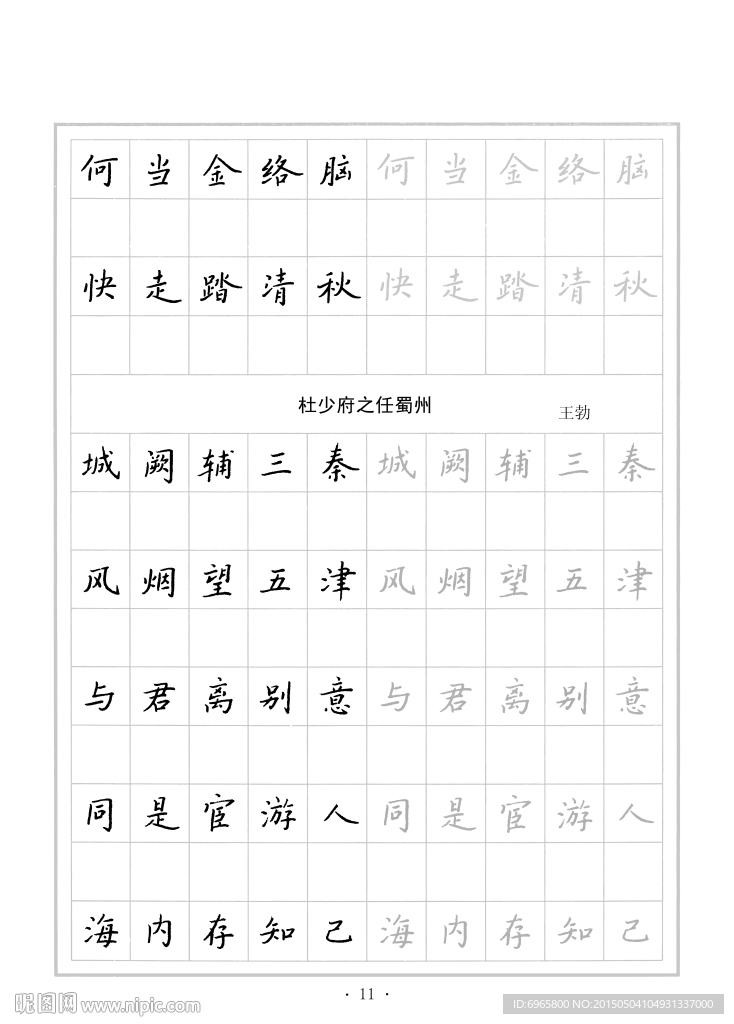 何当金络脑何当金络脑
快走踏清秋快走踏清秋
杜少府之任蜀州 王勃
城阙辅三秦城阙辅三秦
风烟望五津风烟望五津
与君离别意与君离别意
同是宦游人同是宦游人
海内存知己海内存知己
· 11 ·
昵图网 www.nipic.com
ID:6965800 NO:20150504104931337000